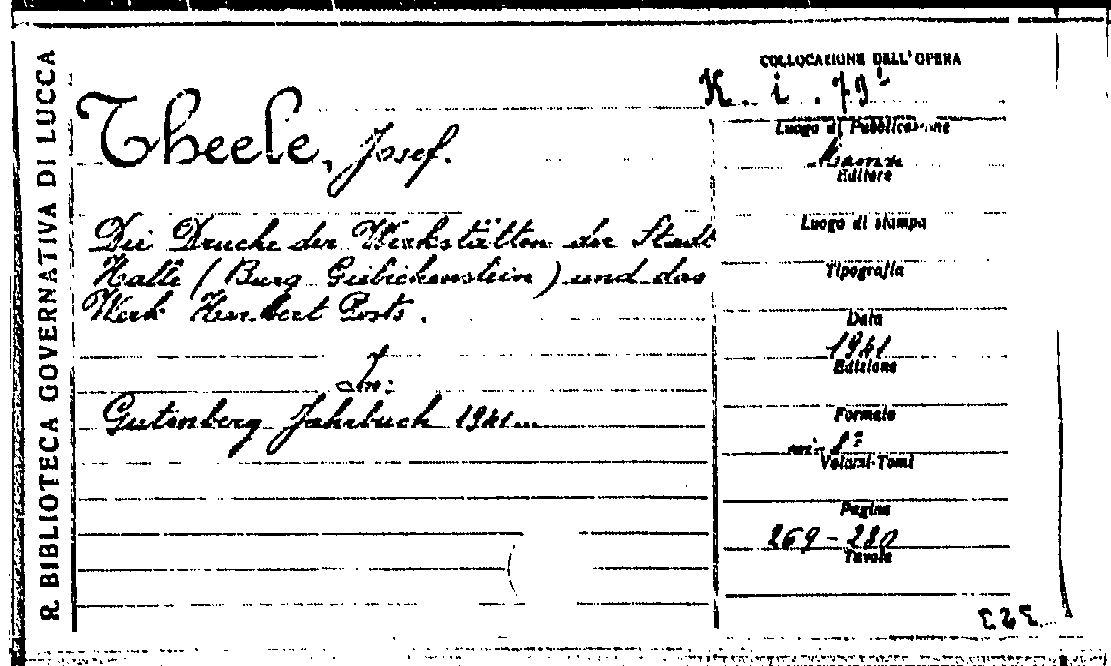 R. BIBLIOTECA GOVERNATIVA DI LUCCA
Theele, Josef.
Die Drucke der Werkstätten der Stadt
Halle (Burg Giebichenstein) und das
Werk Herbert Posts.
In:
Gutenberg Jahrbuch 1941
COLLOCAZIONE DELL'OPERA
K. i. 79
Luogo di Pubblicazione
Editore
Luogo di stampa
Tipografia
Data
1941
Edizione
Formato
in 8º
Volumi-Tomi
Pagine
269-280
Tavole